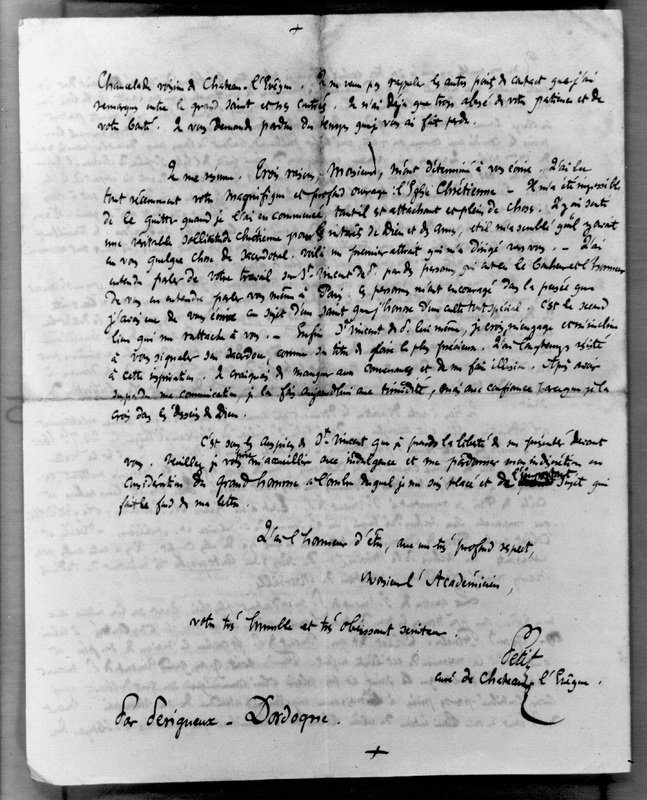 Chancelade voisin de Chateau-l'Evêque. Je ne veux pas rappeler les autres points de contact que j'ai
remarqués entre le grand saint et nos contrées. Je n'ai déjà que trop abusé de votre patience et de
votre bonté. Je vous demande pardon du temps que je vous ai fait perdre.
Je me résume. Trois raisons, Monsieur, m'ont déterminé à vous écrire. J'ai lu
tout récemment votre magnifique et profond ouvrage: l'Eglise Chrétienne - Il m'a été impossible
de le quitter quand je l'ai eu commencé, tant il est attachant et plein de choses. J'y ai senti
une véritable sollicitude chrétienne pour les intérêts de Dieu et des âmes, et il m'a semblé qu'il y avait
en vous quelque chose de sacerdotal. Voilà un premier attrait qui m'a dirigé vers vous. - J'ai
entendu parler de votre travail sur St. Vincent de P. par des personnes qui ont eu le bonheur et l'honneur
de vous en entendre parler vous même à Paris. Ces personnes m'ont encouragé dans la pensée que
j'avais eue de vous écrire au sujet d'un saint que j'honore d'un culte tout spécial. C'est le second
lien qui me rattache à vous. - Enfin St. Vincent de P. lui même, je crois, m'engage et m'incline
à vous signaler son sacerdoce, comme son titre de gloire le plus précieux. J'ai longtemps résisté
à cette inspiration. Je craignais de manquer aux convenances et de me faire illusion. Après avoir
suspendu ma communication, je la fais aujourd'hui avec timidité, mais avec confiance parce que je la
crois dans les desseins de Dieu.
C'est sous les auspices de St. Vincent que je prends la liberté de me présenter devant
vous. Veuillez je vous prie m'accueillir avec indulgence et me pardonner mon indiscrétion en
considération du grand homme à l'ombre duquel je me suis placé et de l'important sujet qui
fait le fond de ma lettre.
J'ai l'honneur d'être, avec un très profond respect,
Monsieur l'Académicien,
votre très humble et très obéissant serviteur.
Petit
curé de Chateau l'Evêque.
Par Périgueux - Dordogne.